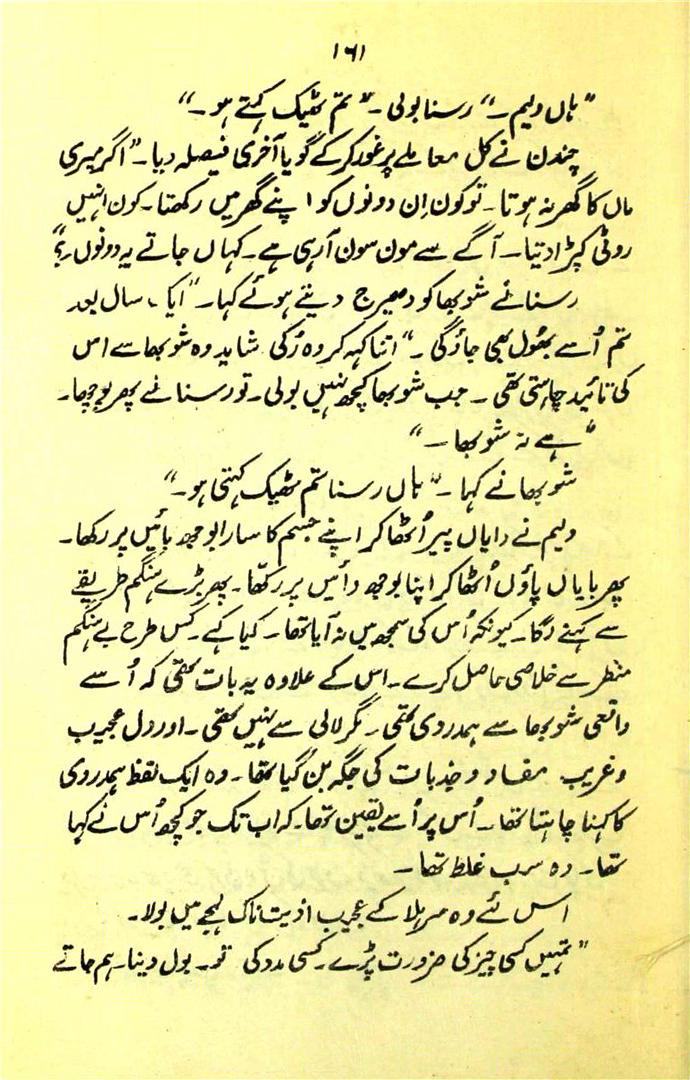 ۱۶۱
"ہاں ولیم۔" رسنا بولی۔ "تم ٹھیک کہتے ہو۔"
چندن نے کل معاملے پر غور کر کے گویا آخری فیصلہ دیا۔ "اگر میری
ماں کا گھر نہ ہوتا۔ تو کون اِن دونوں کو اپنے گھر میں رکھتا۔ کون انہیں
روٹی کپڑا دیتا۔ آگے سے مون سون آ رہی ہے۔ کہاں جاتے یہ دونوں؟"
رسنا نے شوبھا کو دھیرج دیتے ہوئے کہا۔ "ایک سال بعد
تم اُسے بھُول بھی جاؤگی۔" اتنا کہہ کر وہ رُکی شاید وہ شوبھا سے اس
کی تائید چاہتی تھی۔ جب شوبھا کچھ نہیں بولی۔ تو رسنا نے پھر پوچھا۔
"ہے نہ شوبھا۔"
شوبھا نے کہا۔ "ہاں رسنا تم ٹھیک کہتی ہو۔"
ولیم نے دایاں پیر اُٹھا کر اپنے جسم کا سارا بوجھ بائیں پر رکھا۔
پھر بایاں پاؤں اُٹھا کر اپنا بوجھ دائیں پر رکھّا۔ پھر بڑے ہنگم طریقے
سے کہنے لگا۔ کیونکہ اُس کی سمجھ میں نہ آیا تھا۔ کیا کہے۔ کس طرح بے ہنگم
منظر سے خلاصی حاصل کرے۔ اس کے علاوہ یہ بات تھی کہ اُسے
واقعی شوبھا سے ہمدردی تھی۔ مگر لالی سے نہیں تھی۔ اور دل عجیب
و غریب مفاد و جذبات کی جگہ بن گیا تھا۔ وہ ایک لفظ ہمدردی
کا کہنا چاہتا تھا۔ اُس پر اُسے یقین تھا۔ کہ اب تک جو کچھ اُس نے کہا
تھا۔ وہ سب غلط تھا۔
اس لئے وہ سر ہلا کے عجیب اذیت ناک لہجے میں بولا۔
"تمہیں کسی چیز کی ضرورت پڑے۔ کسی مدد کی تو۔ بول دینا۔ ہم جاتے